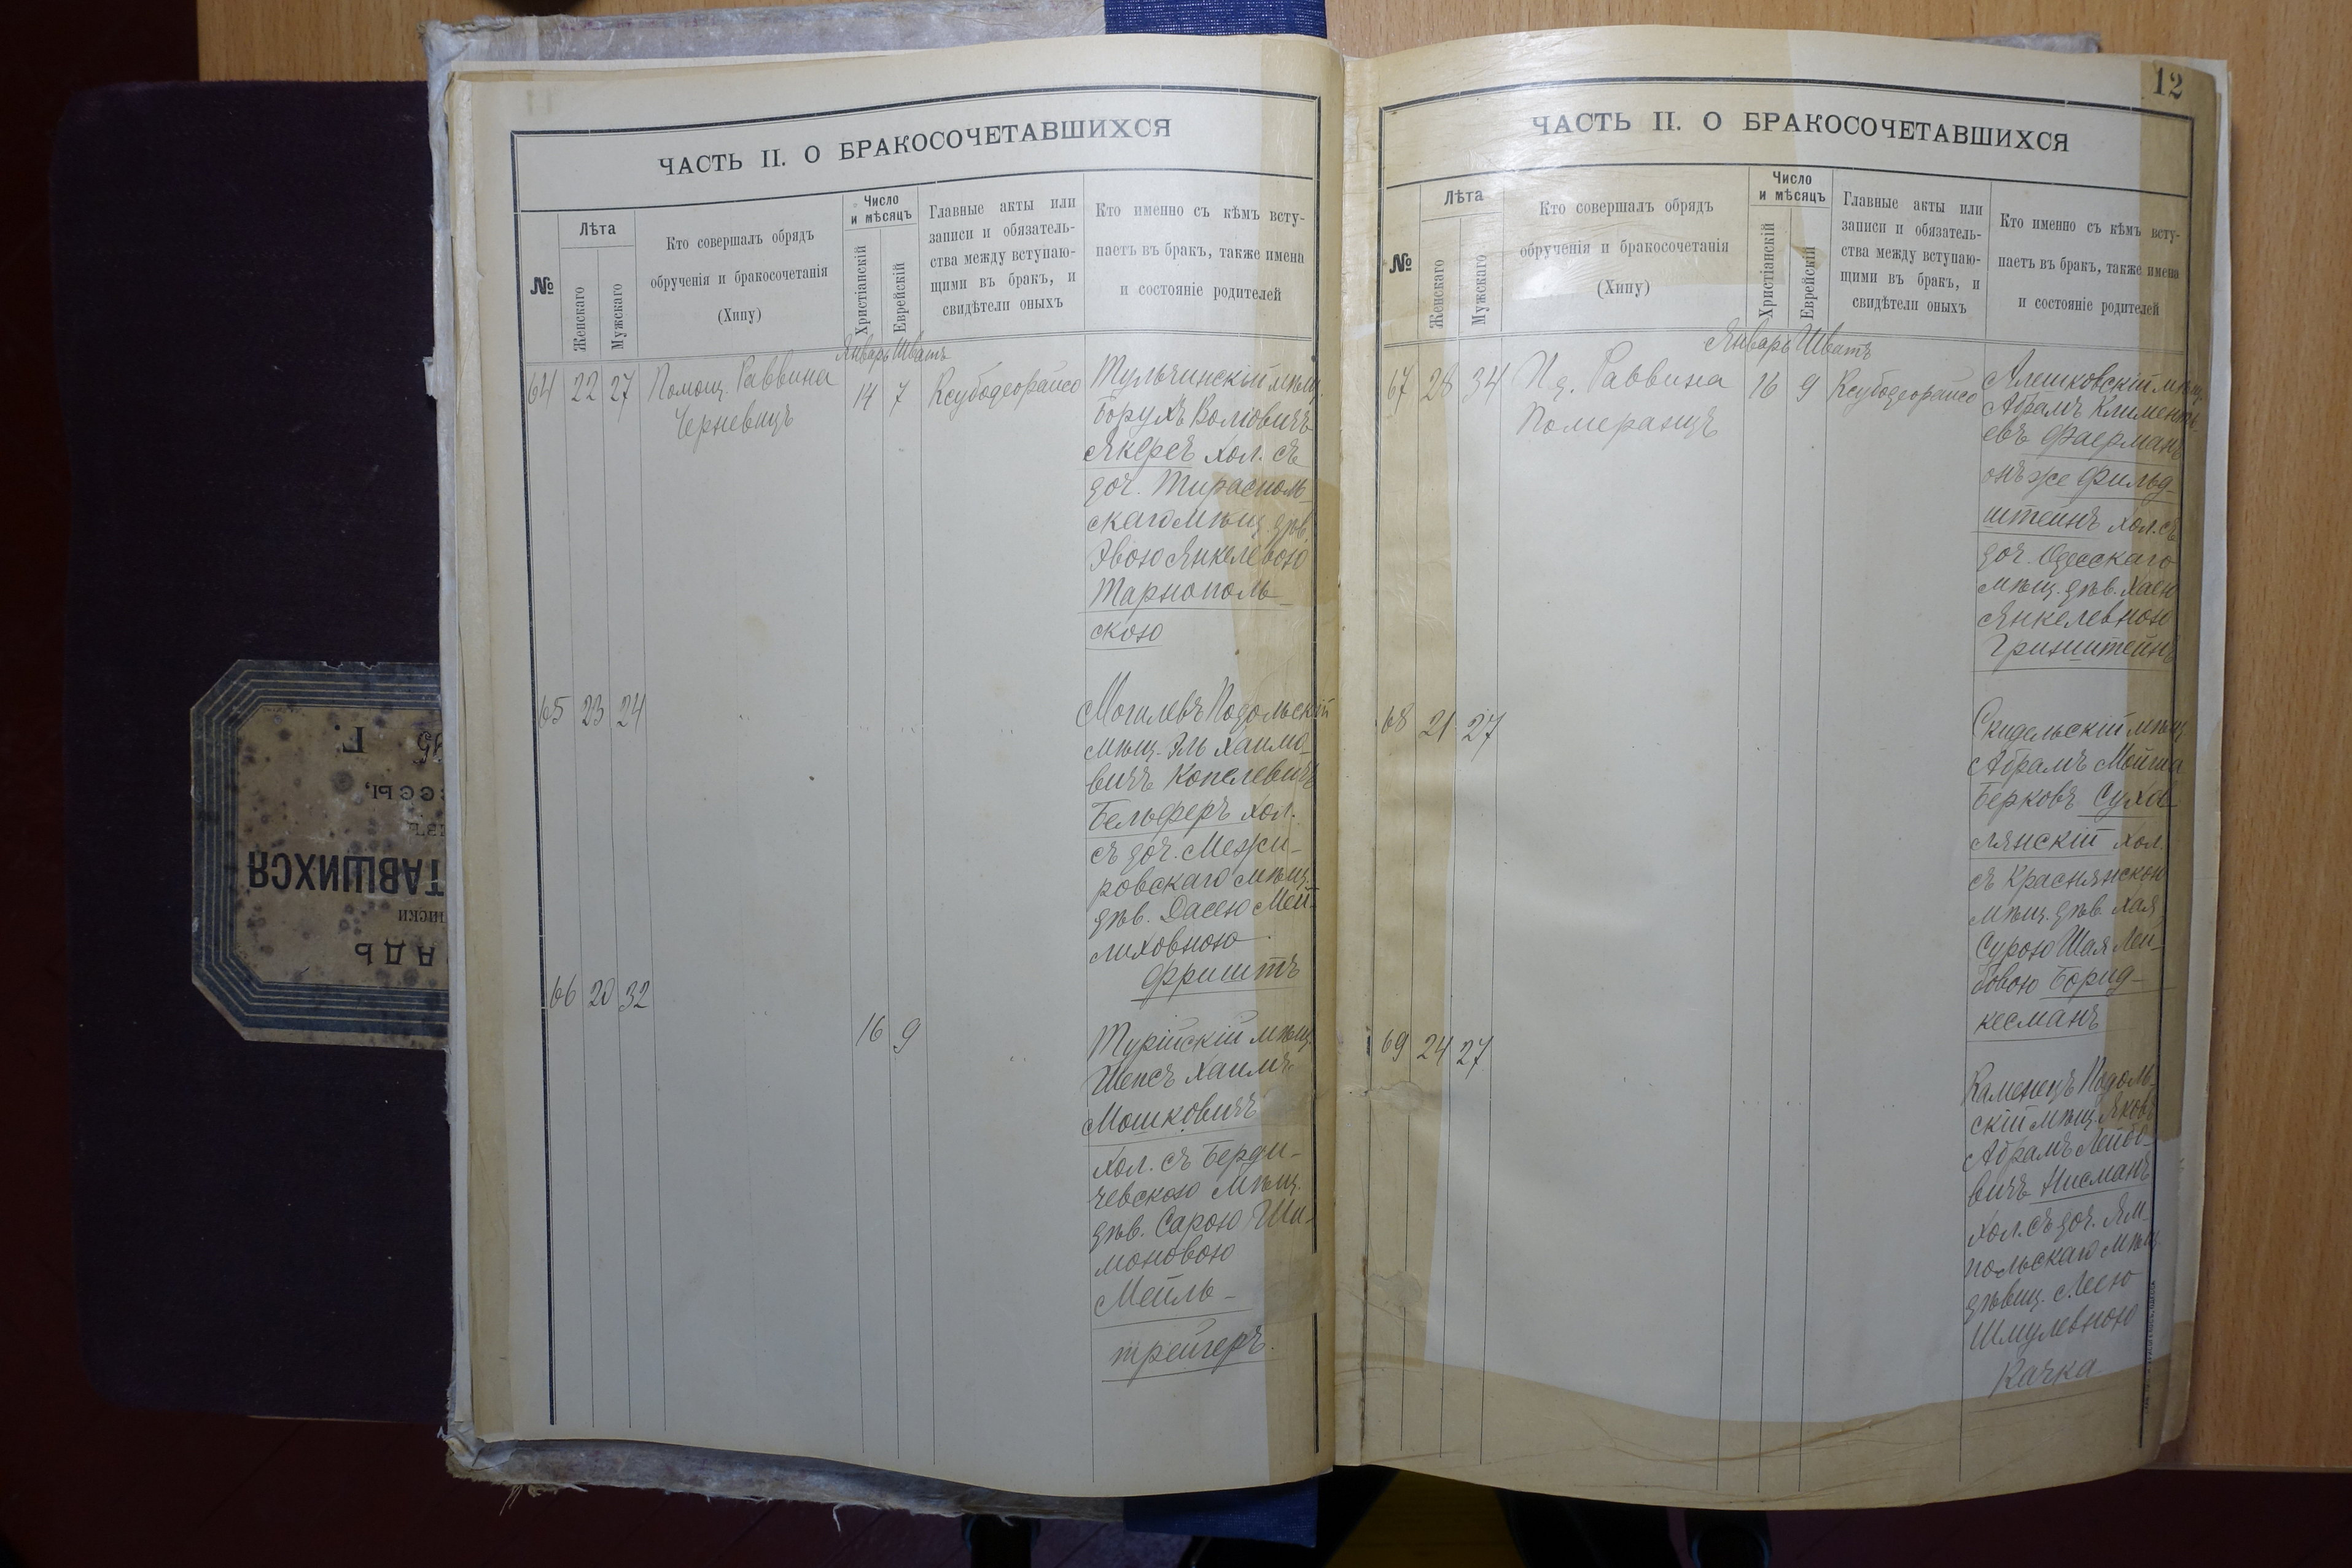 ЧАСТЬ II. О БРАКОСОЧЕТАВШИХСЯ
№
Лѣта
Женскаго
Мужскаго
Кто совершалъ обрядъ
обрученія и бракосочетанія
(Хипу)
Число
и мѣсяцъ
Христіанскій
Еврейскій
Главные акты или
записи и обязатель-
ства между вступаю-
щими въ бракъ, и
свидѣтели оныхъ
Кто именно съ кѣмъ всту-
паетъ въ бракъ, также имена
и состояніе родителей
Январь Шватъ
64 22 27
Помощ. Раввина
Черневицъ
14 7
Ксубодеорайсо
Тульчинскій мѣщ.
Борухъ Волковичъ
Якеръ хол. съ
доч. Тирасполь-
скаго мѣщ. дѣв.
Эвою Янкелевою
Тарнополь-
скою
65 23 24
Могилевъ Подольскій
мѣщ. Эль Хаимо-
вичъ Копелевичъ
Бельферъ хол.
съ доч. Межи-
ровскаго мѣщ.
дѣв. Дасею Мей-
лиховною
Фриштъ
66 20 32
16 9
Турійскій мѣщ.
Шепсъ Хаимъ
Мошковичъ
хол. съ Берди-
чевскою мѣщ.
дѣв. Сарою Ши-
моновою
Мейль-
трейгеръ.
12
ЧАСТЬ II. О БРАКОСОЧЕТАВШИХСЯ
№
Лѣта
Женскаго
Мужскаго
Кто совершалъ обрядъ
обрученія и бракосочетанія
(Хипу)
Число
и мѣсяцъ
Христіанскій
Еврейскій
Главные акты или
записи и обязатель-
ства между вступаю-
щими въ бракъ, и
свидѣтели оныхъ
Кто именно съ кѣмъ всту-
паетъ въ бракъ, также имена
и состояніе родителей
Январь Шватъ
67 28 34
Раввина
Померанцъ
16 9
Ксубодеорайсо
Алешковскій мѣщ.
Абрамъ Климентъ-
евъ Фаерманъ
онъ же Фильд-
штейнъ хол. съ
доч. Одесскаго
мѣщ. дѣв. Хаею
Янкелевною
Гринштейнъ
68 21 27
Скидельскій мѣщ.
Абрамъ Мойша
Берковъ Суха-
лянскій хол.
съ Краснянскою
мѣщ. дѣв. Хая
Сурою Шая Лей-
бовою Борид-
кесманъ
69 24 27
Каменецъ Подоль-
скій мѣщ. Яковъ
Абрамъ Лейбо-
вичъ Нисманъ
хол. съ доч. Ям-
польскаго мѣщ.
дѣвиц. Лею
Шмулевною
Качка
ТАВШИХСЯ